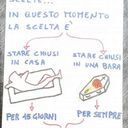 SCELTE...
IN QUESTO MOMENTO
LA SCELTA E'
STARE CHIUSI
IN CASA
STARE CHIUSI
IN UNA BARA
PER 15 GIORNI
PER SEMPRE